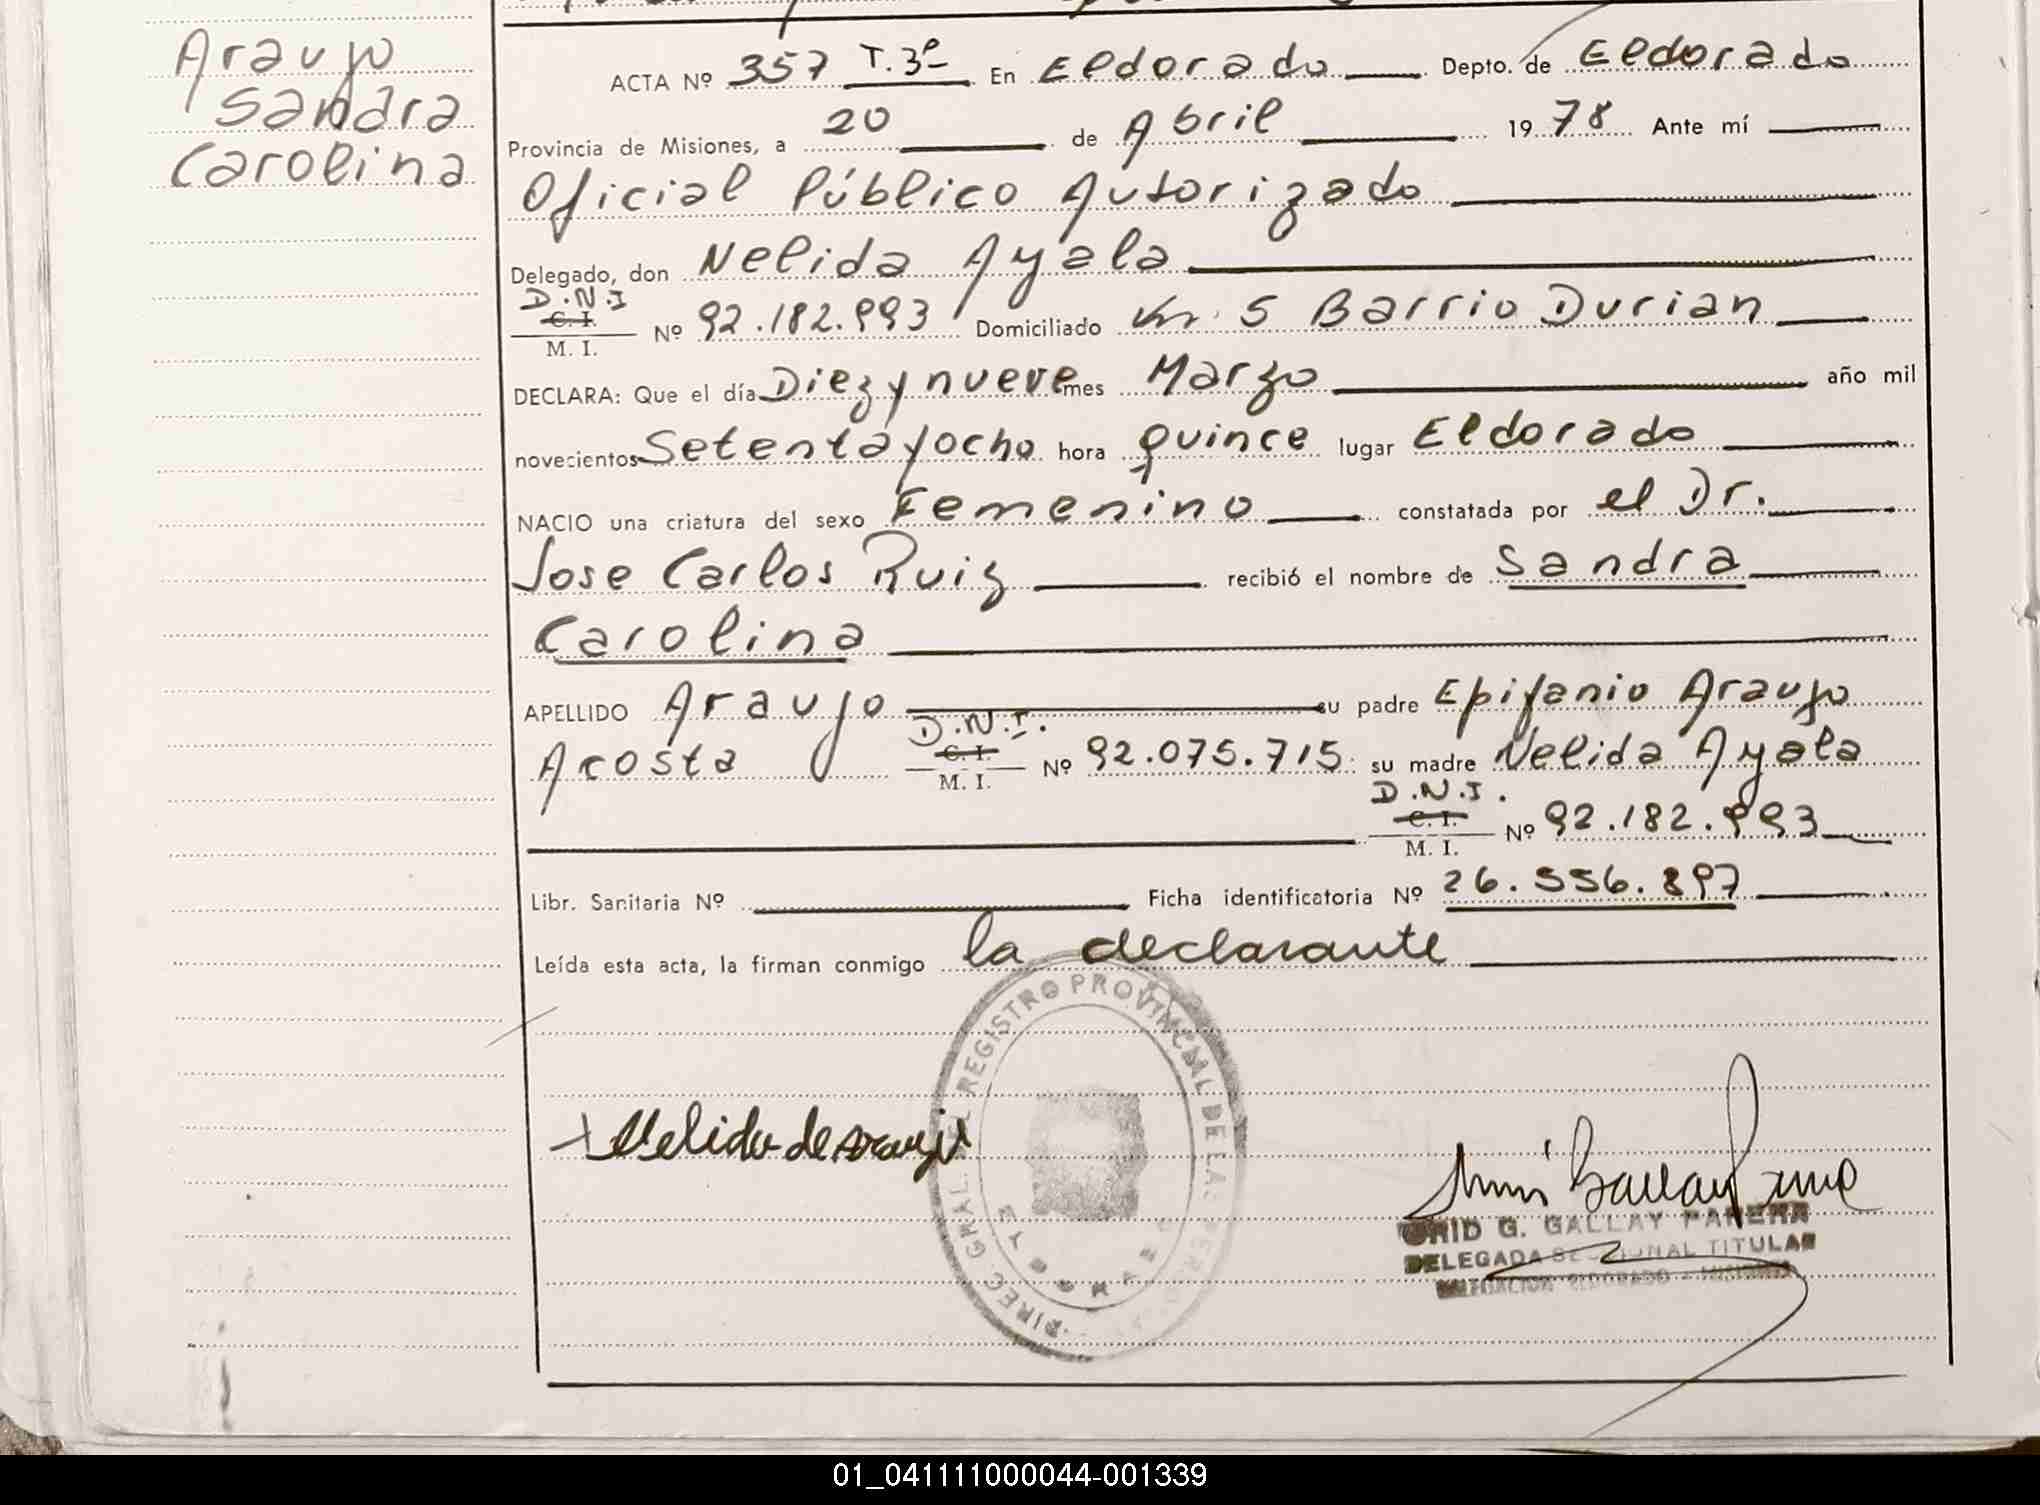 Araujo
Sandra
Carolina
ACTA Nº 357 T.3º En Eldorado Depto. de Eldorado
Provincia de Misiones, a 20 de Abril 1978 Ante mí
Oficial Público Autorizado
Delegado, don Nelida Ayala
D.N.I
C. I.
M. I. Nº 92.182.993 Domiciliado Km. 5 Barrio Durian
DECLARA: Que el día Diez y nueve mes Marzo año mil
novecientos Setenta y ocho hora quince lugar Eldorado
NACIO una criatura del sexo Femenino constatada por el Dr.
Jose Carlos Ruiz recibió el nombre de Sandra
Carolina
APELLIDO Araujo su padre Epifanio Araujo
Acosta D.N.I. C. I. M. I. Nº 92.075.715 su madre Nelida Ayala
D.N.I.
C. I.
M. I. Nº 92.182.993
Libr. Sanitaria Nº Ficha identificatoria Nº 26.556.897
Leída esta acta, la firman conmigo la declarante
DIREC. GRAL. DEL REGISTRO PROVINCIAL DE LAS
Nelida de Araujo
G. GALLAY
DELEGADA SECCIONAL TITULAR
DELEGACION ELDORADO - MISIONES
01_041111000044-001339